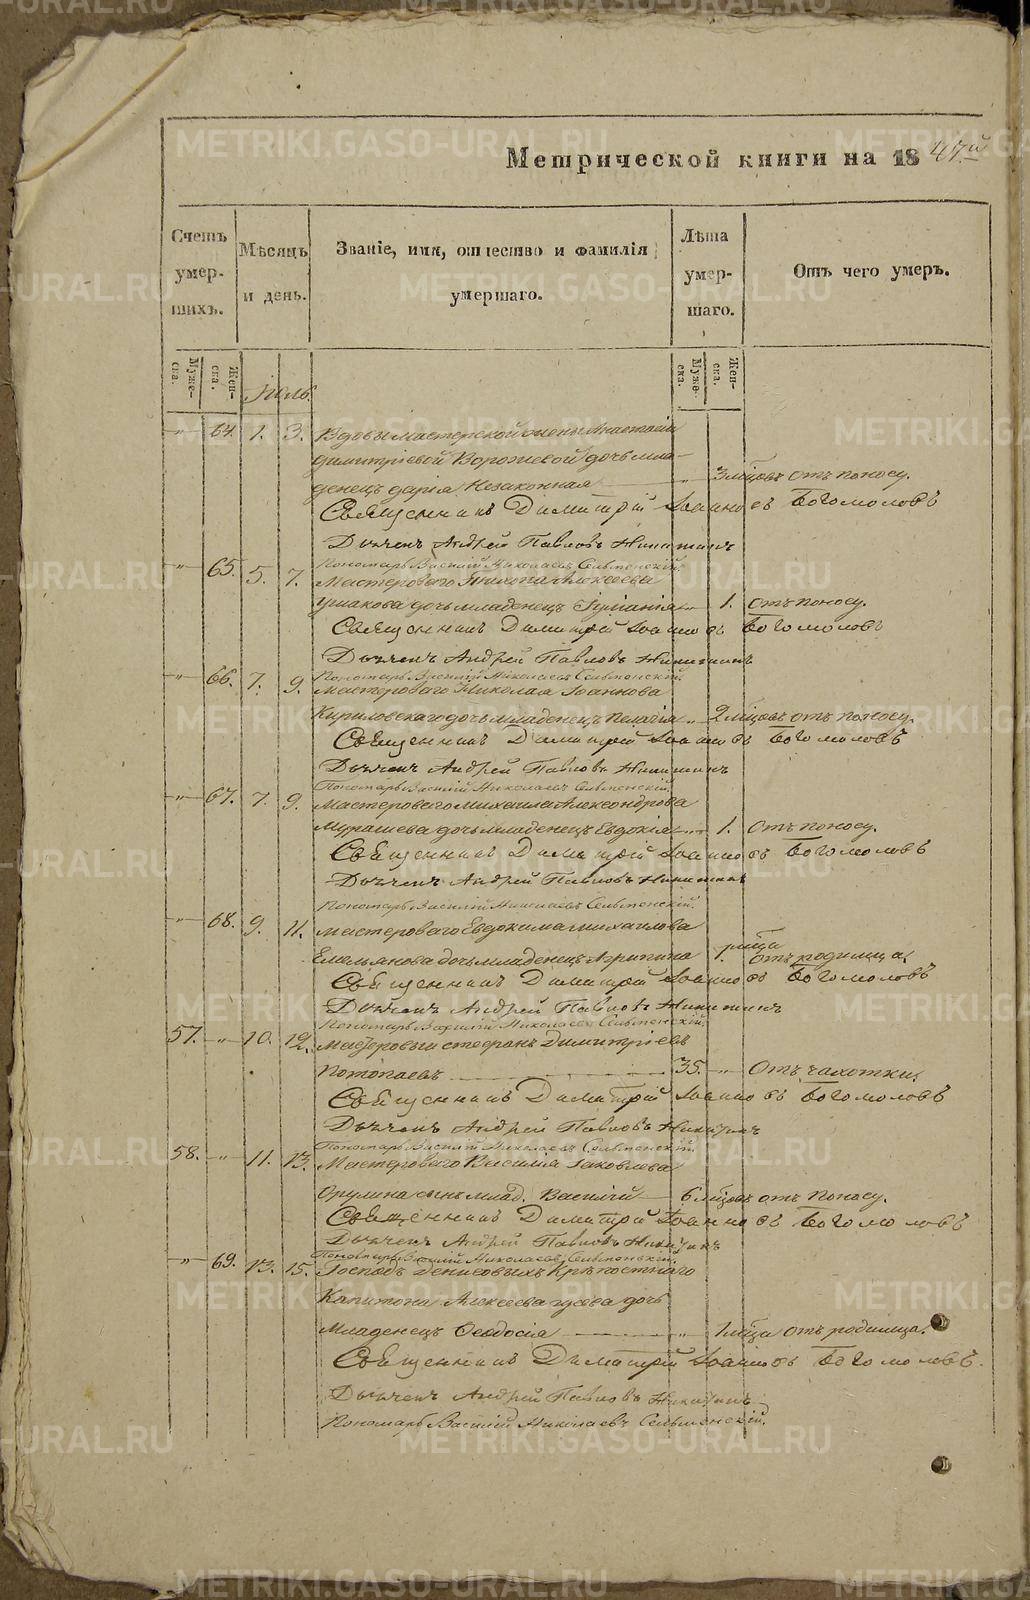 METRIKI.GASO-URAL.RU
Метрической книги на 1847й
Счетъ умер-шихъ.
Мѣсяцъ и день.
Званіе, имя, отчество и фамилія умершаго.
Лѣта умер-шаго.
Отъ чего умеръ.
Муже-ска.
Жен-ска.
Муже-ска.
Жен-ска.
Іюль
" 64. 1. 3. Вдовы мастерской жены Анастасіи
Димитріевой Ворожевой дочь мла-
денецъ Дарія Незаконная " 3 мѣсцовъ отъ поносу.
Священникъ Димитрій Іоанновъ Богомоловъ
Дьячекъ Андрей Павловъ Никитинъ
Пономарь Василій Николаевъ Сельменскій.
" 65. 5. 7. Мастероваго Алексеева
Ушакова дочь младенецъ " 1. отъ поносу.
Священникъ Димитрій Іоанновъ Богомоловъ
Дьячекъ Андрей Павловъ Никитинъ
Пономарь Василій Николаевъ Сельменскій.
" 66. 7. 9. Мастероваго Николая Іоаннова
Кириловскаго дочь младенецъ Пелагія " 2 мѣсцовъ отъ поносу.
Священникъ Димитрій Іоанновъ Богомоловъ
Дьячекъ Андрей Павловъ Никитинъ
Пономарь Василій Николаевъ Сельменскій.
" 67. 7. 9. Мастероваго Михаила Александрова
Мурашева дочь младенецъ Евдокія " 1. отъ поносу.
Священникъ Димитрій Іоанновъ Богомоловъ
Дьячекъ Андрей Павловъ Никитинъ
Пономарь Василій Николаевъ Сельменскій.
" 68. 9. 11. Мастероваго Евдокима Михаилова
Емельянова дочь младенецъ Агрипина 1. отъ родимца.
Священникъ Димитрій Іоанновъ Богомоловъ
Дьячекъ Андрей Павловъ Никитинъ
Пономарь Василій Николаевъ Сельменскій.
57. " 10. 12. Мастеровый Стефанъ Димитріевъ
Потопаевъ 35. " отъ чахотки.
Священникъ Димитрій Іоанновъ Богомоловъ
Дьячекъ Андрей Павловъ Никитинъ
Пономарь Василій Николаевъ Сельменскій
58. " 11. 13. Мастероваго Василія Іаковлева
сынъ млад. Василій 6 мѣсцовъ отъ поносу.
Священникъ Димитрій Іоанновъ Богомоловъ
Дьячекъ Андрей Павловъ Никитинъ
Пономарь Василій Николаевъ Сельменскій.
" 69. 13. 15. Господъ Денисовыхъ Крѣпостнаго
Капитона Алексеева Гусева дочь
Младенецъ Ѳеодосія " 1 мѣсца отъ родимца.
Священникъ Димитрій Іоанновъ Богомоловъ.
Дьячекъ Андрей Павловъ Никитинъ
Пономарь Василій Николаевъ Сельменскій.